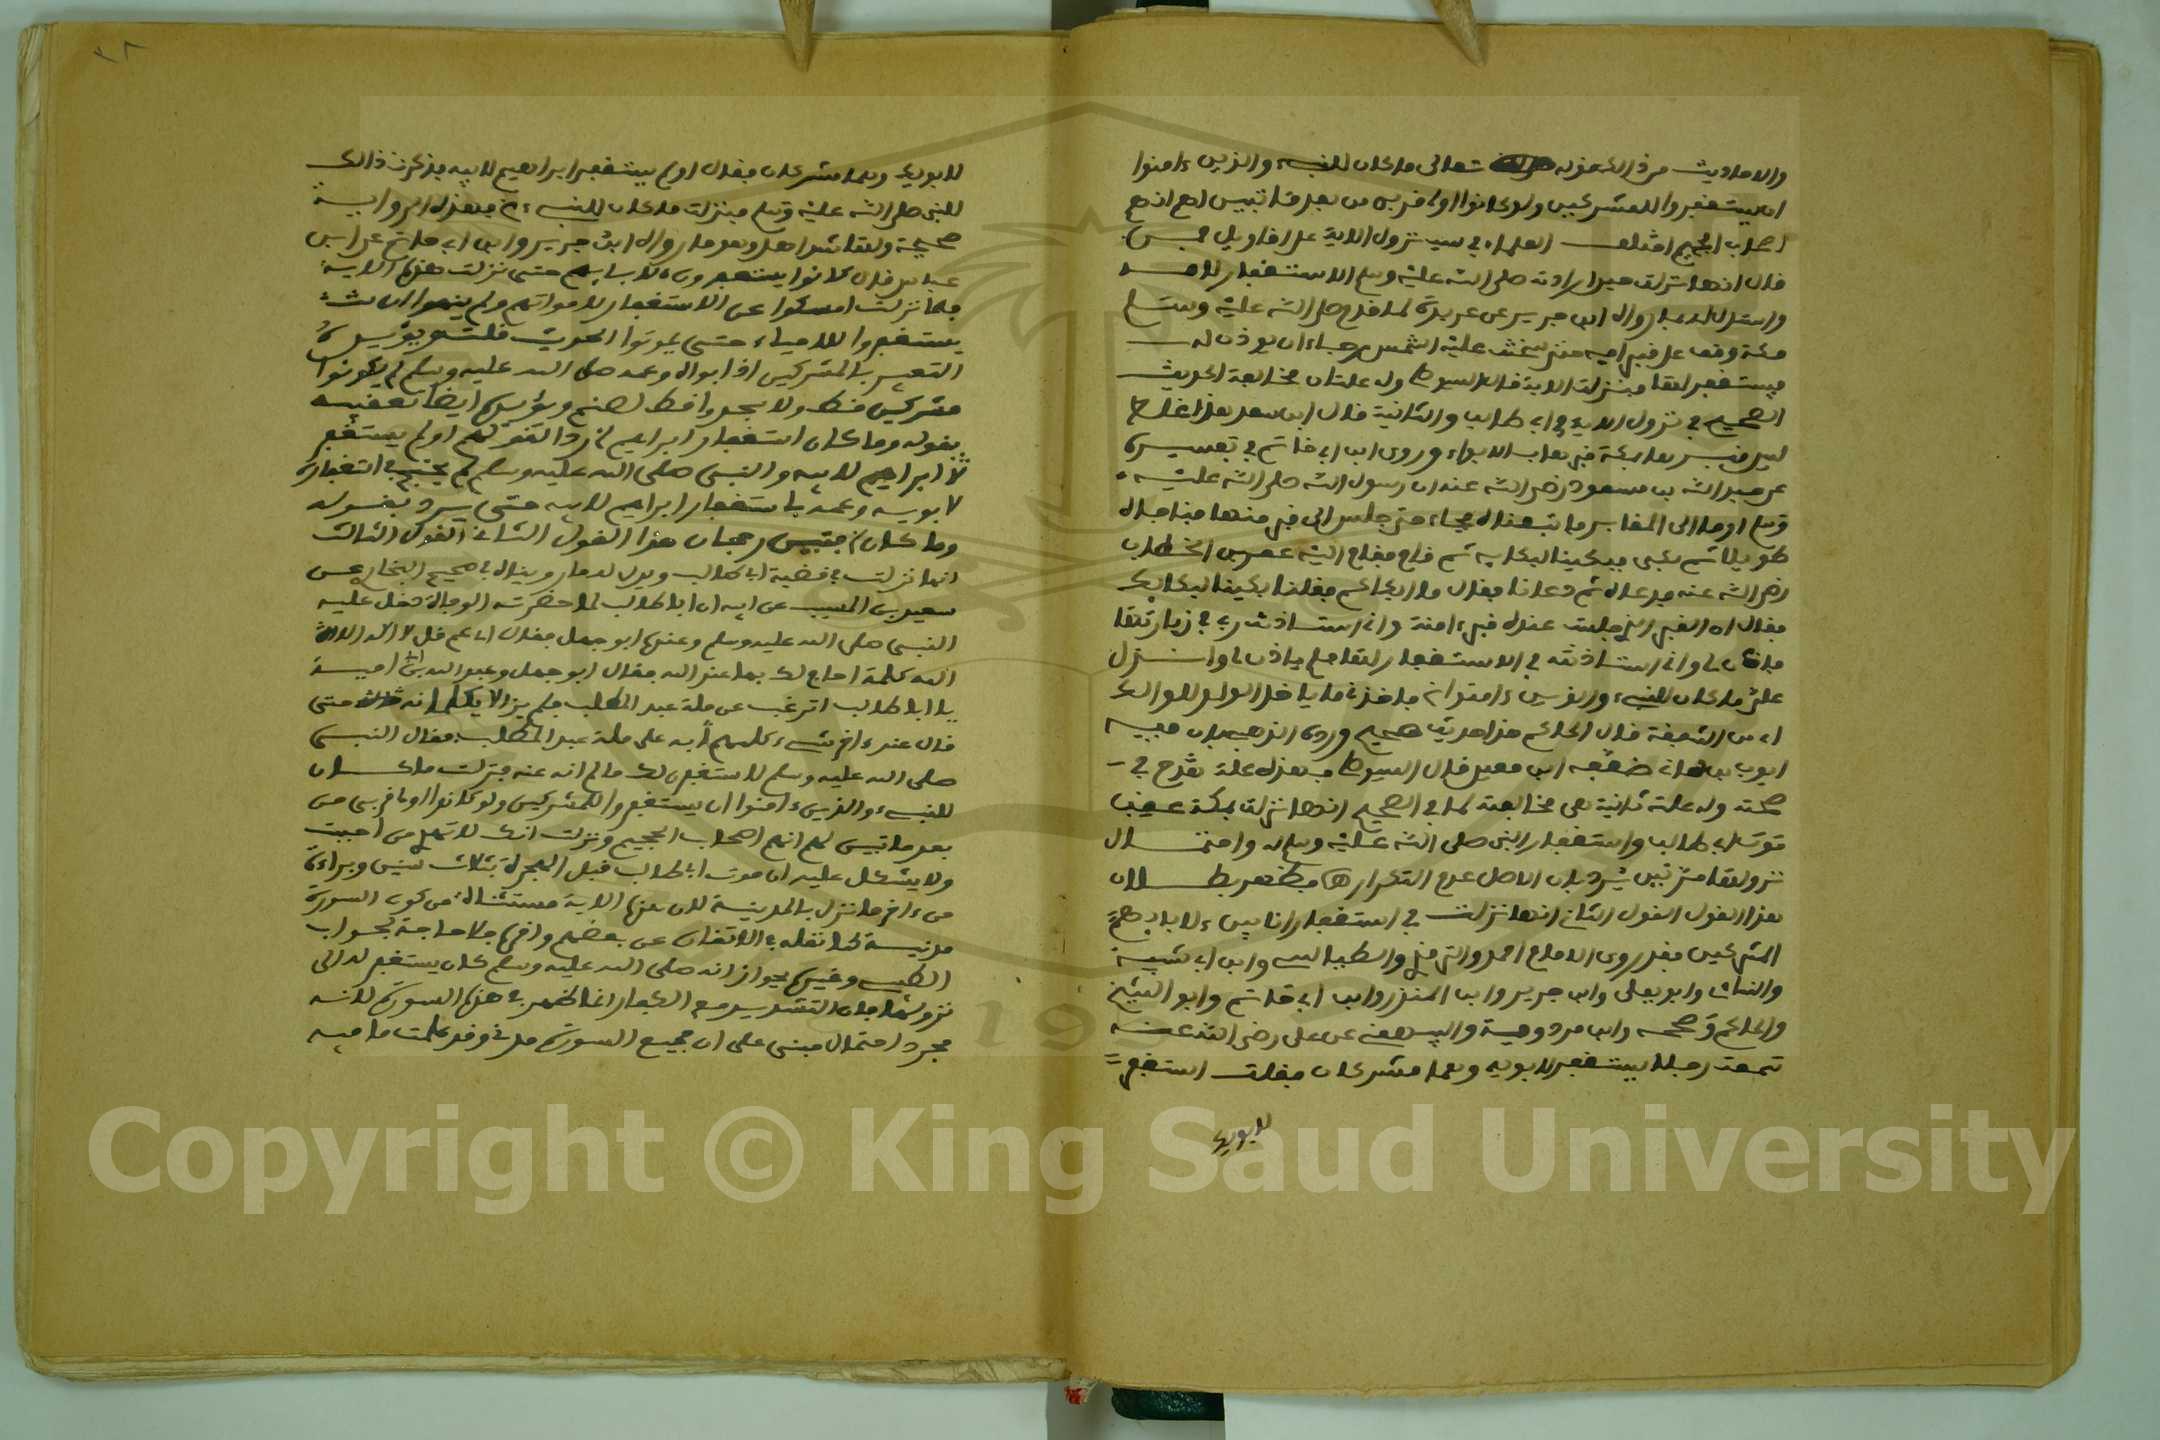 والاحاديث من ذالك قوله تعالى ما كان للنبيء والذين ءامنوا
ان يستغفروا للمشركين ولو كانوا اولى قربى من بعد ما تبين لهم انهم
اصحاب الجحيم اختلف العلماء في سبب نزول الاية على اقاويل
قال انها نزلت حين ارادته صلى الله عليه وسلم الاستغفار لامه
واستدل له بما رواه ابن جرير عن بريدة لما قدم صلى الله عليه وسلم
مكة وقف على قبر امه حتى سخنت عليه الشمس رجاء ان يوذن له
فيستغفر لها فنزلت الاية قال السيوطي وله علتان مخالفة الحديث
الصحيح في نزول الاية في ابي طالب والثانية قال ابن سعد هذا غلط
ليس قبرها بمكة قبرها بالابواء وروى ابن ابي حاتم في تفسيره
عن عبد الله بن مسعود رضي الله عنه ان رسول الله صلى الله عليه
وسلم اوما الى المقابر فاتبعناه فجاء حتى جلس الى قبر منها فناجاه
طويلا ثم بكى فبكينا لبكايه ثم قام فقام اليه عمر بن الخطاب
رضي الله عنه فدعاه ثم دعانا فقال ما ابكاكم فقلنا بكينا لبكايك
فقال ان القبر الذي جلست عنده قبر ءامنة واني استاذنت ربي في زيارتها
فاذن لي واني استاذنته في الاستغفار لها فلم ياذن لي وانزل
علي ما كان للنبيء والذين ءامنوا فاخذني ما ياخذ الولد للوالد
اي من الشفقة قال الحاكم هذا حديث صحيح ورده الذهبي بان فيه
ايوب بن هانئ ضعفه ابن معين قال السيوطي فهذه علة تقدح في
صحته وله علة ثانية هي مخالفته لما في الصحيح انها نزلت بمكة عقب
موت ابي طالب واستغفار النبي صلى الله عليه وسلم له واحتمال
نزولها مرتين يرد بان الاصل عدم التكرار فظهر بطلان
هذا القول القول الثاني انها نزلت في استغفار اناس لابايهم
المشركين فقد روى الامام احمد والترمذي والطيالسي وابن ابي شيبة
والنسائي وابو يعلى وابن جرير وابن المنذر وابن ابي حاتم وابو الشيخ
والحاكم وصححه وابن مردويه والبيهقي عن علي رضي الله عنه
سمعت رجلا يستغفر لابويه وهما مشركان فقلت استغفر
لابويك
لابويك وهما مشركان فقال اولم يستغفر ابراهيم لابيه فذكرت ذالك
للنبي صلى الله عليه وسلم فنزلت ما كان للنبيء فهذه الرواية
صحيحة ولها شواهد وهو ما رواه ابن جرير وابن ابي حاتم عن ابن
عباس قال كانوا يستغفرون لابايهم حتى نزلت هذه الاية
فلما نزلت امسكوا عن الاستغفار لامواتهم ولم ينهوا ان
يستغفروا للاحياء حتى يموتوا الحديث قلت ويؤيده
التعبير بالمشركين اذ ابواه وعمه صلى الله عليه وسلم لم يكونوا
مشركين قط ولا سجدوا قط لصنم ويؤيده ايضا تعقيبه
بقوله وما كان استغفار ابراهيم اولم يستغفر
ابراهيم لابيه والنبي صلى الله عليه وسلم لم يحتج في استغفاره
لابويه وعمه باستغفار ابراهيم لابيه حتى يرد بقوله
وما كان فتبين رجحان هذا القول الثاني القول الثالث
انها نزلت في قضية ابي طالب ويدل له ما رويناه في صحيح البخاري عن
سعيد بن المسيب عن ابيه ان ابا طالب لما حضرته الوفاة دخل عليه
النبي صلى الله عليه وسلم وعنده ابو جهل فقال اي عم قل لا اله الا الله
كلمة احاج لك بها عند الله فقال ابو جهل وعبد الله بن ابي امية
يا ابا طالب اترغب عن ملة عبد المطلب فلم يزالا يكلمانه حتى
قال ءاخر شيء كلمهم به على ملة عبد المطلب فقال النبي
صلى الله عليه وسلم لاستغفرن لك ما لم انه عنه فنزلت ما كان
للنبيء والذين ءامنوا ان يستغفروا للمشركين ولو كانوا اولى قربى من
بعد ما تبين لهم انهم اصحاب الجحيم ونزلت انك لا تهدي من احببت
ولا يشكل عليه ان موت ابي طالب قبل الهجرة بثلاث سنين وبراءة
من ءاخر ما نزل بالمدينة لان هذه الاية مستثناة من كون السورة
مدنية كما نقله في الاتقان عن بعضهم واقره فلا حاجة لجواب
الطيبي وغيره بجواز انه صلى الله عليه وسلم كان يستغفر له الى
نزولها فان التشديد مع الكفار انما ظهر في هذه السورة لانه
مجرد احتمال مبني على ان جميع السورة مدني وقد علمت ما فيه
Copyright © King Saud University